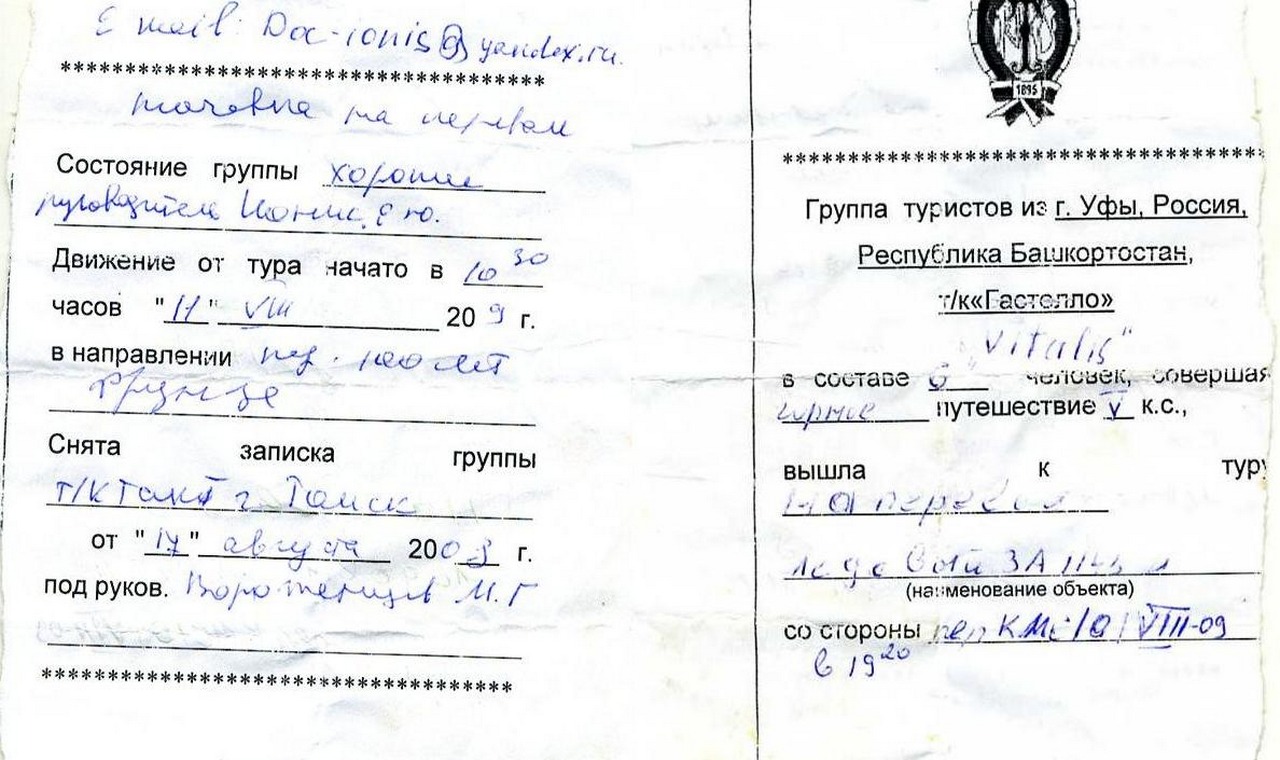 E mail: Doc-ionis@yandex.ru.
***********************************
ночевка на перевале
Состояние группы хорошее
руководитель Ионис Е.Ю.
Движение от тура начато в 10 30
часов "11" VIII 20 9 г.
в направлении пер.
Фрунзе
Снята записка группы
т/к Такт г. Томск
от "17" августа 20 г.
под руков. М.Г
***********************************
1895
***********************************
Группа туристов из г. Уфы, Россия,
Республика Башкортостан,
т/к«Гастелло»
"Vitalis"
в составе 6 человек, совершая
горное путешествие V к.с.,
вышла к туру
на перевал
ледовый 3А
(наименование объекта)
со стороны пер КМС 10 VIII-09
в 19 20